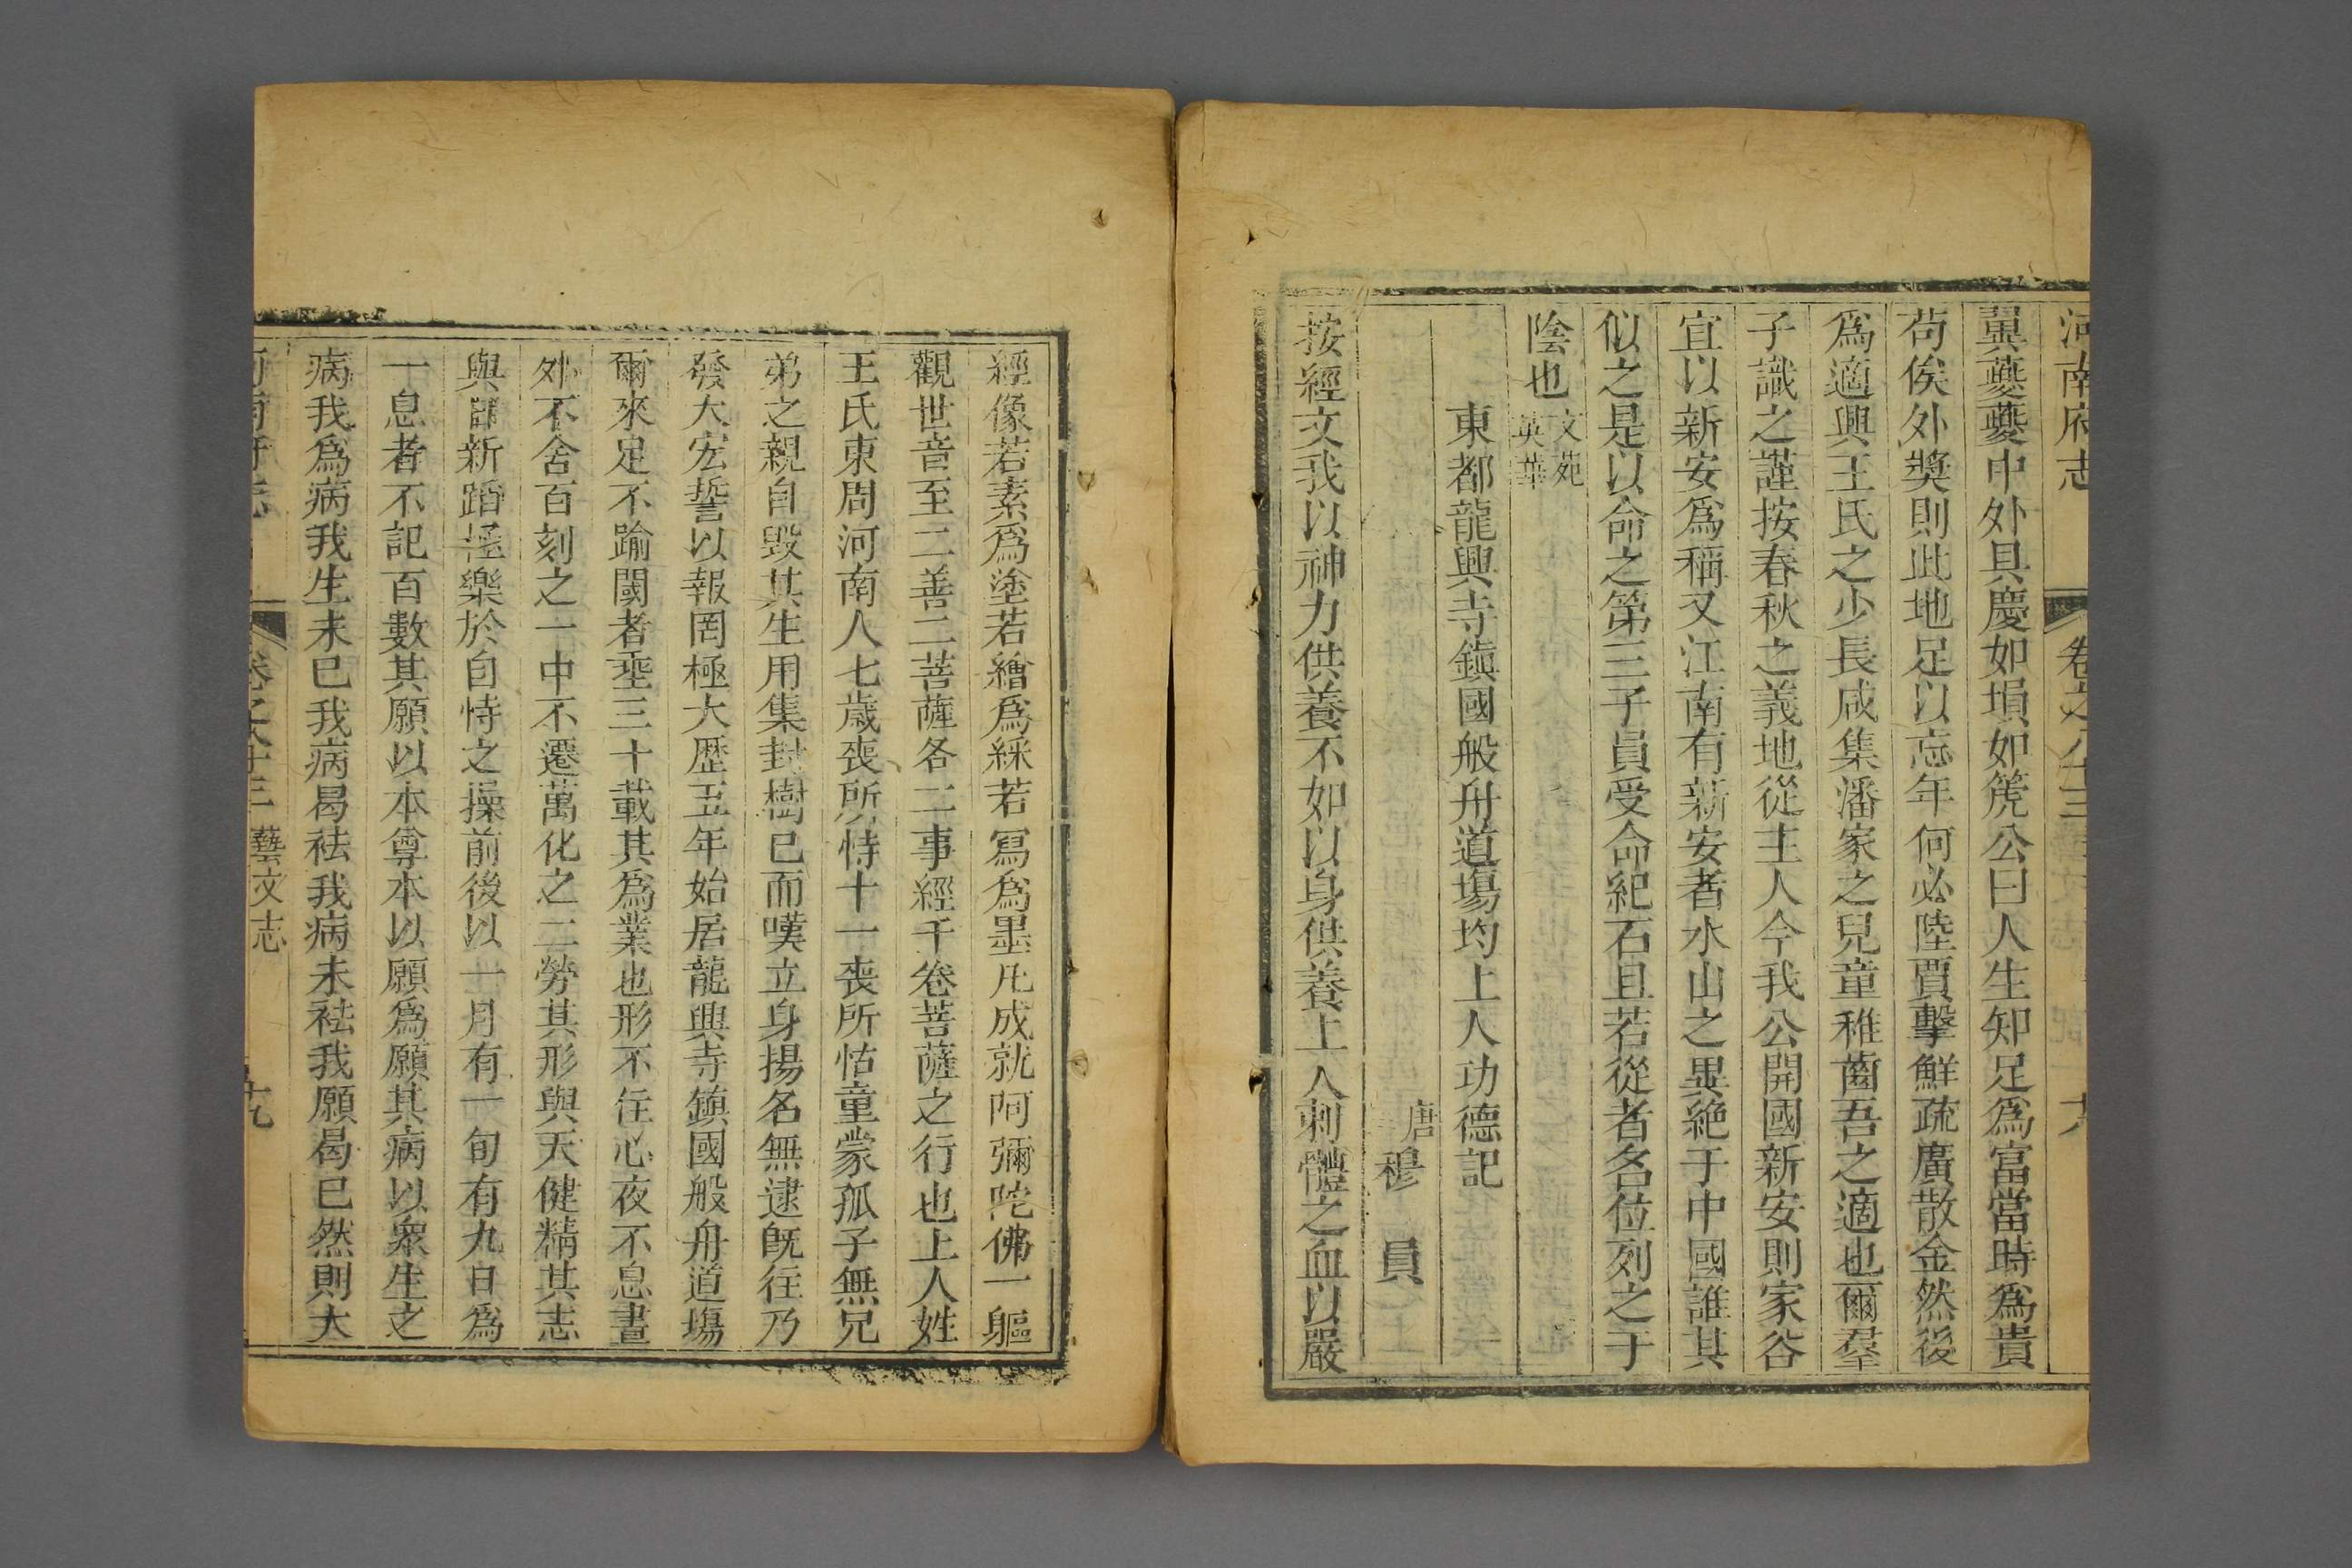 河南府志 卷之八十三 十八
翼虁虁中外具慶如塤如篪公曰人生知足爲富當時爲貴
苟俟外獎則此地足以忘年何必陸賈擊鮮疏廣散金然後
爲適興王氏之少長咸集潘家之兒童稚齒吾之適也爾羣
子識之謹按春秋之義地從主人今我公開國新安則家谷
宜以新安爲稱又江南有新安者水山之異絶于中國誰其
似之是以命之第三子員受命紀石且若從者名位列之于
陰也文苑英華
東都龍興寺鎮國般舟道場均上人功德記
唐 穆 員
按經文我以神力供養不如以身供養上人刺體之血以嚴
經像若素爲塗若繪爲綵若寫爲墨凡成就阿彌陀佛一軀
觀世音至二善二菩薩各二事經千卷菩薩之行也上人姓
王氏東周河南人七歲喪所恃十一喪所怙童蒙孤子無兄
弟之親自毀其生用集封樹已而嘆立身揚名無逮既往乃
發大宏誓以報罔極大歷五年始居龍興寺鎮國般舟道塲
爾來足不踰閾者垂三十載其爲業也形不住心夜不息晝
外不舍百刻之一中不遷萬化之二勞其形與天健精其志
與新蹈樂於自恃之操前後以一月有一旬有九日爲
一息者不記百數其願以本尊本以願爲願其病以衆生之
病我爲病我生未已我病曷袪我病未袪我願曷已然則大
河南府志 卷之八十三 藝文志 十九